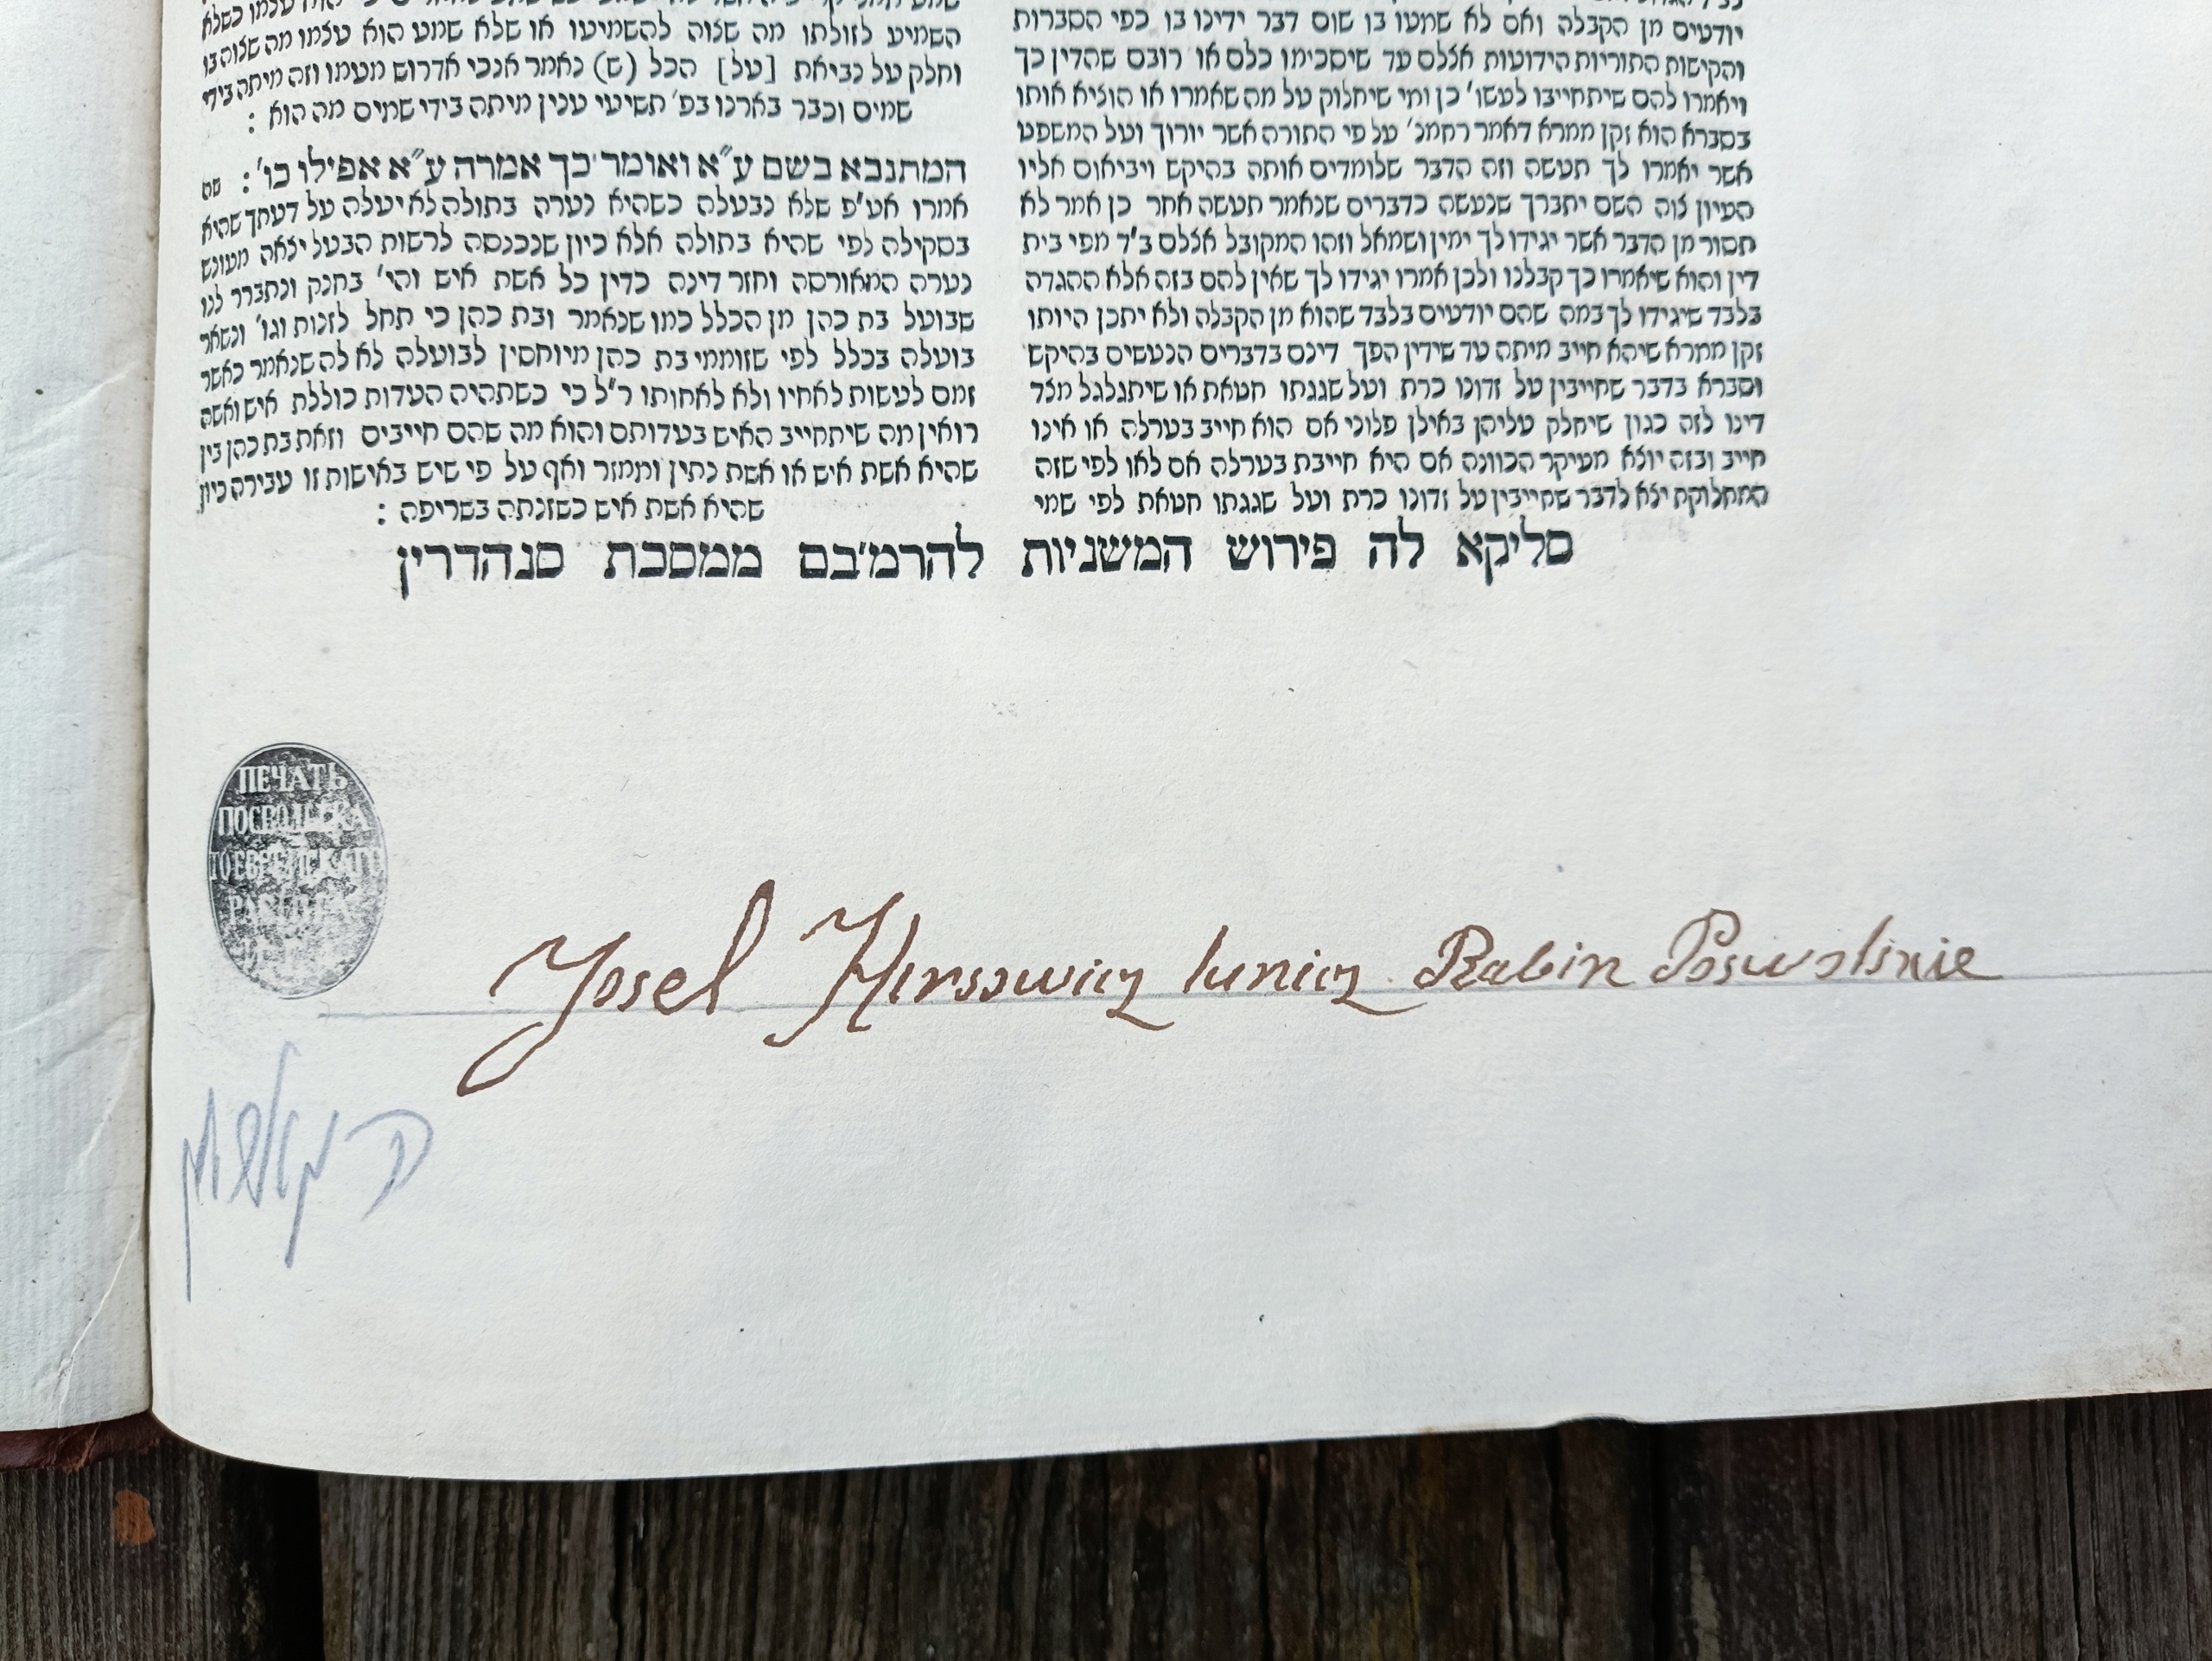 יודעים מן הקבלה ואם לא שמעו בו שום דבר ידינו בו כפי הסברות
והקישות התוריות הידועות אצלם עד שיסכימו כלם או רובם שהדין כך
ויאמרו להם שיתחייבו לעשו' כן ומי שיחלוק על מה שאמרו או הוציא אותו
בסברא הוא זקן ממרא דאמר רחמנ' על פי התורה אשר יורוך ועל המשפט
אשר יאמרו לך תעשה וזה הדבר שלומדים אותה בהיקש ויביאום אליו
העיון צוה השם יתברך שנעשה כדברים שנאמר תעשה אחר כן אמר לא
תסור מן הדבר אשר יגידו לך ימין ושמאל וזהו המקובל אצלם ב"ד מפי בית
דין והוא שיאמרו כך קבלנו ולכן אמרו יגידו לך שאין להם בזה אלא ההגדה
בלבד שיגידו לך במה שהם יודעים בלבד שהוא מן הקבלה ולא יתכן היותו
זקן ממרא שיהא חייב מיתה עד שידין הפך דינם בדברים הנעשים בהיקש
וסברא בדבר שחייבין על זדונו כרת ועל שגגתו חטאת או שיתגלגל מצד
דינו לזה כגון שיחלק עליהן באילן פלוני אם הוא חייב בערלה או אינו
חייב ובזה יוצא מעיקר הכוונה אם היא חייבת בערלה אם לאו לפי שזה
המחלוקת יצא לדבר שחייבין על זדונו כרת ועל שגגתו חטאת לפי שמי
השמיע לזולתו מה שצוה להשמיעו או שלא שמע הוא עצמו מה שצוה בו
וחלק על נביאת [על] הכל (ש) נאמר אנכי אדרוש מעמו וזה מיתה בידי
שמים וכבר בארנו בפ' תשיעי ענין מיתה בידי שמים מה הוא :
המתנבא בשם ע"א ואומר כך אמרה ע"א אפילו כו' :
אמרו אע"פ שלא נבעלה כשהיא נערה בתולה לא יעלה על דעתך שהיא
בסקילה לפי שהיא בתולה אלא כיון שנכנסה לרשות הבעל יצאה מעונש
נערה המאורסה וחזר דינה כדין כל אשת איש והי' בחנק ונתברר לנו
שבועל בת כהן מן הכלל כמו שנאמר ובת כהן כי תחל לזנות וגו' ונשאר
בועלה בכלל לפי שזוממי בת כהן מיוחסין לבועלה לא לה שנאמר כאשר
זמם לעשות לאחיו ולא לאחותו ר"ל כי כשתהיה העדות כוללת איש ואשה
רואין מה שיתחייב האיש בעדותם והוא מה שהם חייבים וזאת בת כהן בין
שהיא אשת איש או אשת נתין וממזר ואף על פי שיש באישות זו עבירה כיון
שהיא אשת איש כשזנתה בשריפה :
סליקא לה פירוש המשניות להרמ"בם ממסכת סנהדרין
ПЕЧАТЬ
Josel Hirsowicz Iunicz Rabin Poswolsnie